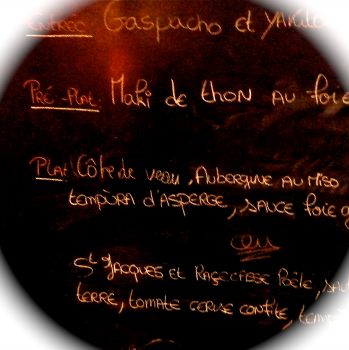 ENTRÉE: Gaspacho et YAKITO
PRÉ-PLAT: Maki de thon AU foie
PLAT: Côte de veau, AUBERGINE AU MISO
TEMPURA d'ASPERGE, SAUCE foie g
ou
St JACQUES ET RASCASSE Poêlé, SAU
TERRE, TOMATE CERISE CONFITE, TEMP